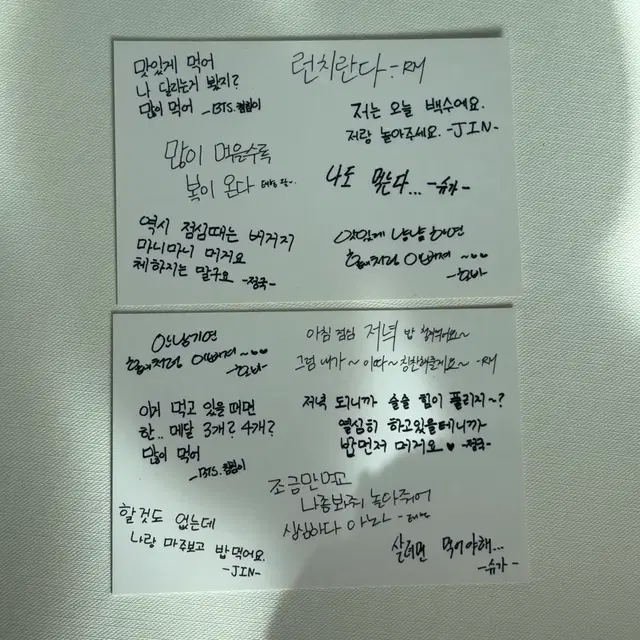 맛있게 먹어
나 달리는거 봤지?
많이 먹어 -BTS. 침침이
런치란다 - RM
저는 오늘 백수에요.
저랑 놀아주세요. -JIN-
많이 먹을수록
복이 온다
나도 먹는다... -슈가-
역시 점심때는 버거지
마니마니 머거요
체하지는 말구요 -정국-
맛있게 냠냠하면
호비처럼 이뻐져 ~
-호비
안남기면
호비처럼 이뻐져 ~
-호비
아침 점심 저녁 밥
그럼 내가~ 이따~ 칭찬해줄게요~ -RM
이거 먹고 있을 때면
한.. 메달 3개? 4개?
많이 먹어
-BTS. 침침이
저녁 되니까 슬슬 힘이 풀리지~?
열심히 하고있을테니까
밥먼저 머거요 ♥ -정국-
조금만먹고
나중봐줘 놀아줘어
심심하다 아미나 -태형
할것도 없는데
나랑 마주보고 밥먹어요.
-JIN-
살려면 먹어야해...
-슈가-